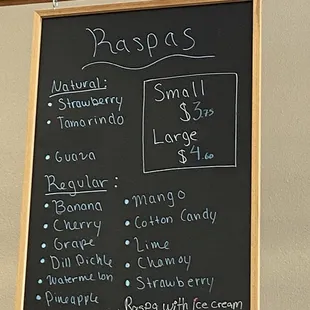 Raspas
Natural:
• Strawberry
• Tamarindo
• Guaza
Small
$3.75
Large
$4.60
Regular:
• Banana
• Cherry
• Grape
• Dill Pickle
• Watermelon
• Pineapple
• Mango
• Cotton Candy
• Lime
• Chamoy
• Strawberry
Raspa with Ice cream